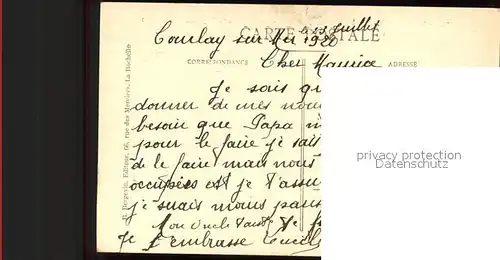 CARTE POSTALE
Courlay sur Mer 13 Juillet
1920
CORRESPONDANCE
ADRESSE
Cher Maurice
Je sais
donner de mes
besoin que Papa
pour le faire je
de le faire mais nous
occupées et je t'assu
je suais moins
Mon Oncle Tante
Je t'embrasse
R. Bergevin, Editeur, 66, rue des Merciers, La Rochelle
privacy protection